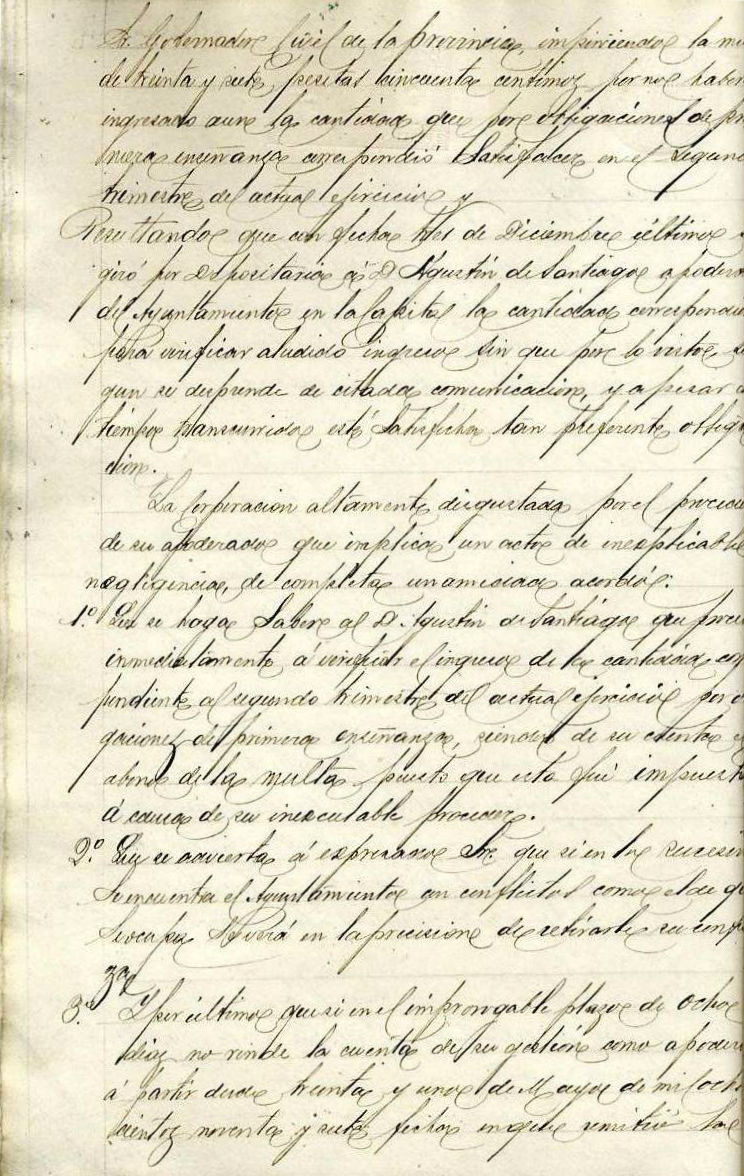 Sr. Gobernador Civil de la provincia, imponiendo la mu
de treinta y siete pesetas cincuenta centimos por no haber
ingresado aun la cantidad que por obligaciones de pri
mera enseñanza correspondió satisfacer en el segundo
trimestre del actual ejercicio y
Resultando que con fecha tres de Diciembre último se
giró por Depositaria á D Agustin de Santiago apodera
del Ayuntamiento en la Capital la cantidad correspondien
para verificar aludido ingreso sin que por lo visto se
gun se desprende de citada comunicacion, y apesar d
tiempo transcurrido esté satisfecha tan preferente obliga
cion.
La Corporacion altamente disgustada por el proceder
de su apoderado que implica un acto de inexplicable
negligencia, de completa unamidad acordó:
1º Que se haga saber al D. Agustin de Santiago que proce
inmediatamente á verificar el ingreso de la cantidad corres
pondiente al segundo trimestre del actual ejercicio por obli
gaciones de primera enseñanza, siendo de su cuenta el
abono de la multa puesto que esta fué impuesta
á causa de su inexcusable proceder.
2º Que se advierta á expresado Sr. que si en lo sucesivo
se encuentra el Ayuntamiento en conflictos como el de que
se ocupa se verá en la precision de retirarle su confian
za
3º Y por último que si en el improrrogable plazo de ocho
dias no rinde la cuenta de su gestión como apodera
á partir desde treinta y uno de Mayo de mil ocho
cientos noventa y siete fecha en que remitió las